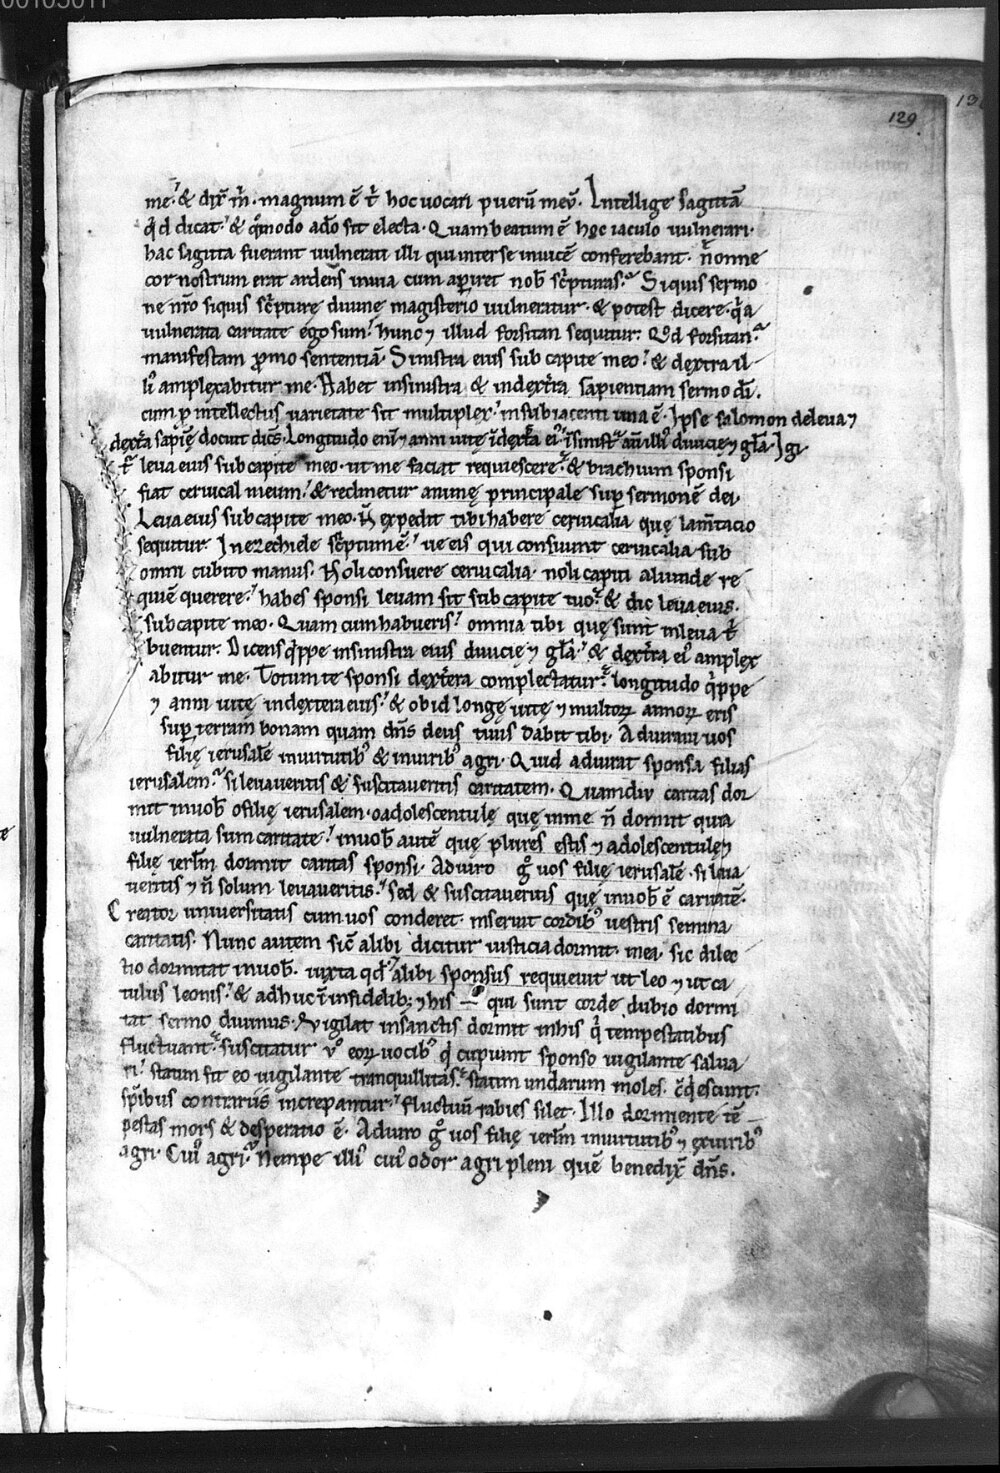 00105011
129
me. & dix̄ m̄. magnum ē t̄ hoc uocari puerū meū. Intellige sagittā
q̄d dicat. & q̄modo a dō sit electa. Quam beatum ē hoc iaculo uulnerari.
hac sagitta fuerant uulnerati illi qui inter se inuicē conferebant. nonne
cor nostrum erat ardens in uia cum aperiret nob̄ sc̄pturas. Siquis sermo
ne nr̄o siquis sc̄pturę diuinę magisterio uulneratur. & potest dicere. q̄a
uulnerata caritate ego sum. hunc ⁊ illud forsitan sequitur. Qd forsitan.
manifestam ꝓmo sententiā. Sinistra eius sub capite meo. & dextra il
liꝰ amplexabitur me. Habet in sinistra & in dextra sapientiam sermo dī.
cum ꝑ intellectus uarietate sit multiplex. in subiacenti una ē. Ipse salomon de leua ⁊
dextra sapīę docuit dicēs. Longitudo eni ⁊ anni uitę ī dextra eiꝰ. ī sinistra aū illiꝰ diuicię ⁊ gl̄a. Igi
t̄ leua eius sub capite meo. ut me faciat requiescere. & brachium sponsi
fiat ceruical meum. & reclinetur animę principale suꝑ sermonē dei.
Leua eius sub capite meo. n̄ expedit tibi habere ceruicalia quę lam̄tacio
sequitur. In ezechiele sc̄ptum ē. ue eis qui consuunt ceruicalia sub
omni cubito manus. Noli consuere ceruicalia. noli capiti aliunde re
quiē querere. habes sponsi leuam sit sub capite tuo. & dic leua eius.
sub capite meo. Quam cum habueris. omnia tibi quę sunt in leua t̄
buentur. Dicens q̄ppe in sinistra eius diuicię ⁊ gl̄a. & dextra eiꝰ amplex
abitur me. Totum te sponsi dextera complectatur. longitudo q̄ppe
⁊ anni uitę in dextera eius. & ob id longę uitę ⁊ multoꝝ annoꝝ eris
suꝑ terram bonam quam dn̄s deus tuus dabit tibi. Adiuraui uos
filię ierusalē in uirtutibꝰ & in uiribꝰ agri. Quid adiurat sponsa filias
ierusalem. si leuaueritis & suscitaueritis caritatem. Quamdiu caritas dor
mit in uob̄ o filię ierusalem. o adolescentulę quę in me n̄ dormit quia
uulnerata sum caritate. in uob̄ autē quę plures estis ⁊ adolescentulę ⁊
filię ierl̄m dormit caritas sponsi. Adiuro gͦ uos filię ierusalē. si leua
ueritis ⁊ n̄ solum leuaueritis. sed & suscitaueritis quę in uob̄ ē caritatē.
Creator uniuersitatis cum uos conderet. inseruit cordibꝰ uestris semina
caritatis. Nunc autem sic̄ alibi dicitur iusticia dormit. mea. sic dilec
tio dormitat in uob̄. iuxta qd̄ alibi sponsus requieuit ut leo ⁊ ut ca
tulus leonis. & adhuc ī infidelib; ⁊ his qui sunt corde dubio dormi
tat sermo diuinus. Vigilat in sanctis dormit in his q̄ tempestatibus
fluctuant. suscitatur uͦ eoꝝ uocibꝰ q̄ cupiunt sponso uigilante salua
ri. statim fit eo uigilante tranquillitas. statim undarum moles. c̄q̄escunt.
sp̄ibus contrariis increpantur. fluctuū rabies silet. Illo dormiente tē
pestas mors & desperatio ē. Adiuro gͦ uos filię ierl̄m in uirtutibꝰ ⁊ ex uiribꝰ
agri. Cuiꝰ agri. Nempe illiꝰ cuiꝰ odor agri pleni quē benedix̄ dn̄s.